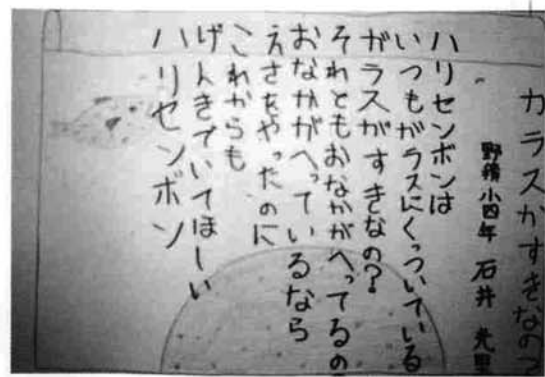 ガラスがすきなの?
野積小四年 石井 光里
ハリセンボンは
いつもガラスにくっついている
ガラスがすきなの?
それともおなかがへってるの
おなかがへっているなら
えさをやったのに
これからも
げんきでいてほしい
ハリセンボン